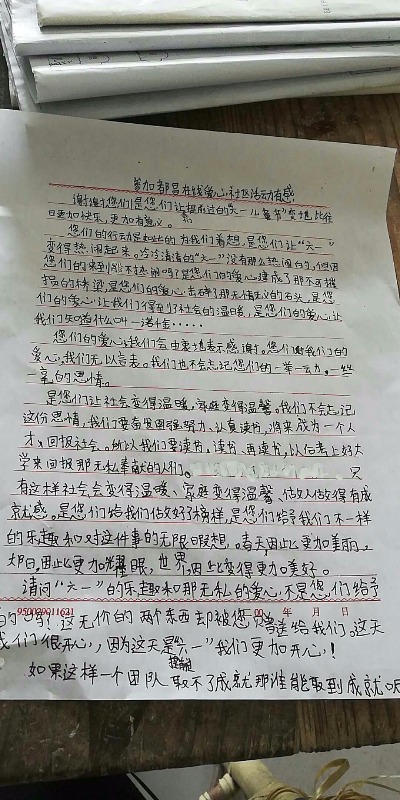 参加都昌在线爱心社区活动有感
谢谢您们,是您们让提前过的“六一儿童节”变地比往
日更加快乐,更加有意义。
您们的行动是如此的为我们着想,是您们让“六一”
变得热闹起来。冷冷清清的“六一”没有那么热闹的,但因
您们的来到能不热闹吗?是您们的爱心建成了那不可摧
损的桥梁,是您们的爱心击碎了那无情无义的石头,是您
们的爱心让我们得到了社会的温暖,是您们的爱心让
我们知道什么叫一诺千金……
您们的爱心,我们会由衷地表示感谢。您们谢我们的
爱心,我们无以言表。我们也不会忘记您们的一举一动,一丝
一毫的恩情。
是您们让社会变得温暖,家庭变得温馨。我们不会忘记
这份恩情,我们要奋发图强努力、认真读书,将来成为一个人
才,回报社会。所以我们要读书,读书,再读书,以后考上好大
学来回报那无私奉献的人们。 只
有这样社会会变得温暖、家庭变得温馨、做人做得有成
就感。是您们给我们做好了榜样,是您们给予我们不一样
的乐趣和对这件事的无限遐想。春天因此更加美丽。
太阳因此更加耀眼,世界因此变得更加美好。
请问“六一”的乐趣和那无私的爱心,不是您们给予
9500299 11621 年 月 日
的吗?这无价的两个东西却被您们赠送给我们。这天
我们很开心,因为这天是“六一”我们更加开心!
如果这样一个团队取不了成就那谁能取到成就呢